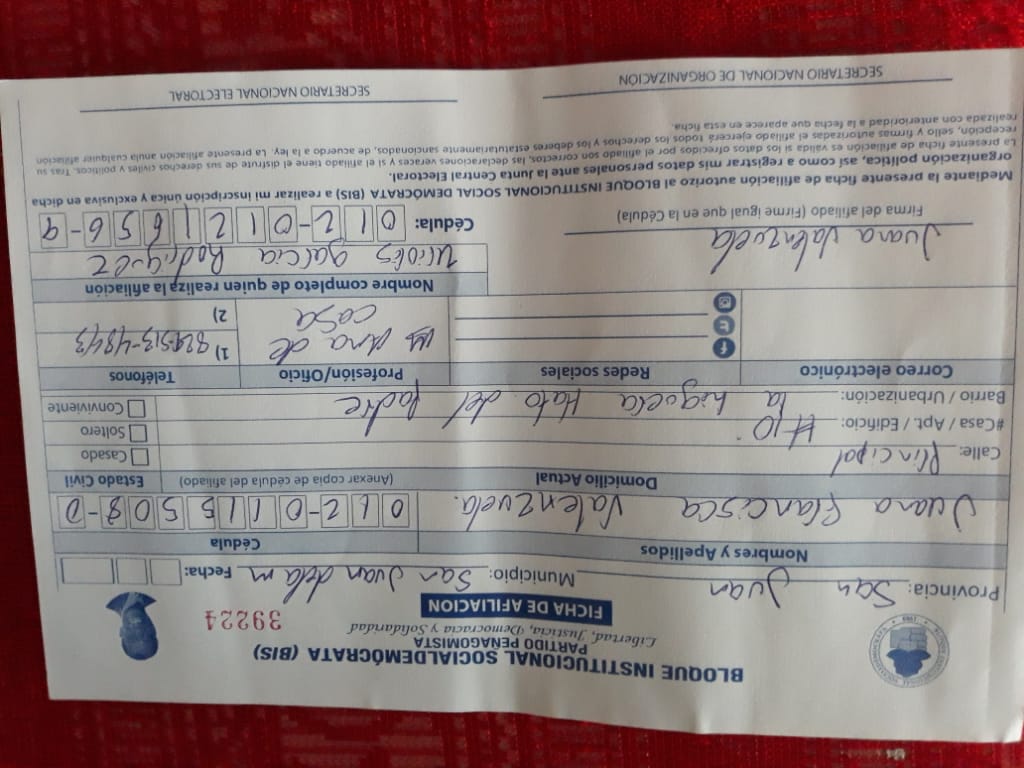 BLOQUE INSTITUCIONAL SOCIALDEMÓCRATA (BIS)
PARTIDO PEÑAGOMISTA
Libertad, Justicia, Democracia y Solidaridad
FICHA DE AFILIACION
39224
Provincia: San Juan Municipio: San Juan dela m Fecha:
Nombres y Apellidos Cédula
Juana Francisca Valenzuela. 012-0115508-0
Domicilio Actual (Anexar copia de cédula del afiliado) Estado Civil
Calle: Principal Casado
#Casa / Apt. / Edificio: #10 Soltero
Barrio / Urbanización: la higuera Hato del padre Conviviente
Correo electrónico Redes sociales Profesión/Oficio Teléfonos
Ama de casa
1) 829-513-4843
2)
Nombre completo de quien realiza la afiliación
garcia Rodriguez
Juana Valenzuela
Firma del afiliado (Firme igual que en la Cédula)
Cédula: 012-0121656-9
Mediante la presente ficha de afiliación autorizo al BLOQUE INSTITUCIONAL SOCIAL DEMÓCRATA (BIS) a realizar mi inscripción única y exclusiva en dicha
organización política, así como a registrar mis datos personales ante la Junta Central Electoral.
La presente ficha de afiliación es válida si los datos ofrecidos por el afiliado son correctos, las declaraciones veraces y si el afiliado tiene el disfrute de sus derechos civiles y políticos. Tras su
recepción, sello y firmas autorizadas el afiliado ejercerá todos los derechos y los deberes estatutariamente sancionados, de acuerdo a la ley. La presente afiliación anula cualquier afiliación
realizada con anterioridad a la fecha que aparece en esta ficha.
SECRETARIO NACIONAL DE ORGANIZACIÓN SECRETARIO NACIONAL ELECTORAL